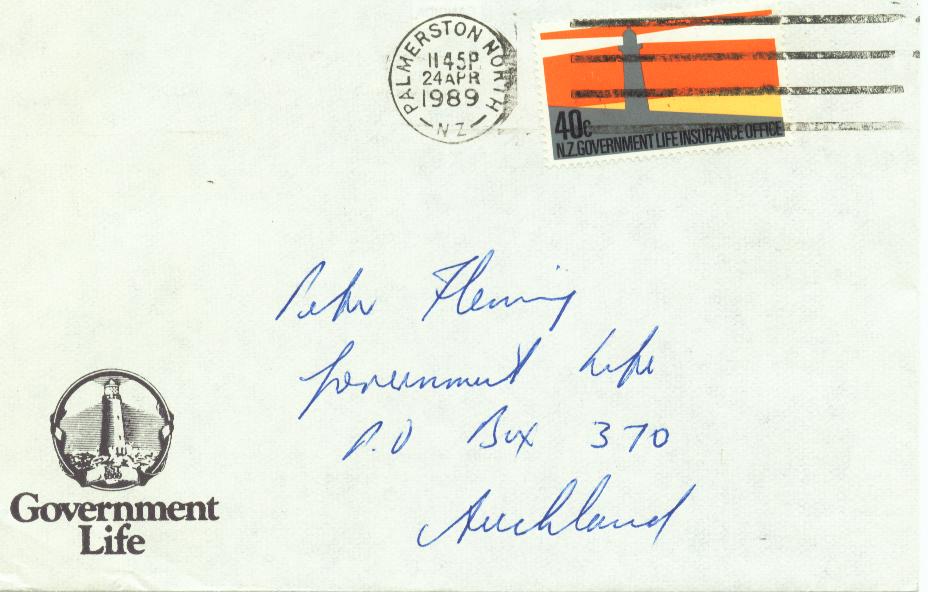 PALMERSTON NORTH
1145P
24APR
1989
NZ
40c
N.Z. GOVERNMENT LIFE INSURANCE OFFICE
Peter Fleming
Government Life
P.O Box 370
Auckland
Government
Life